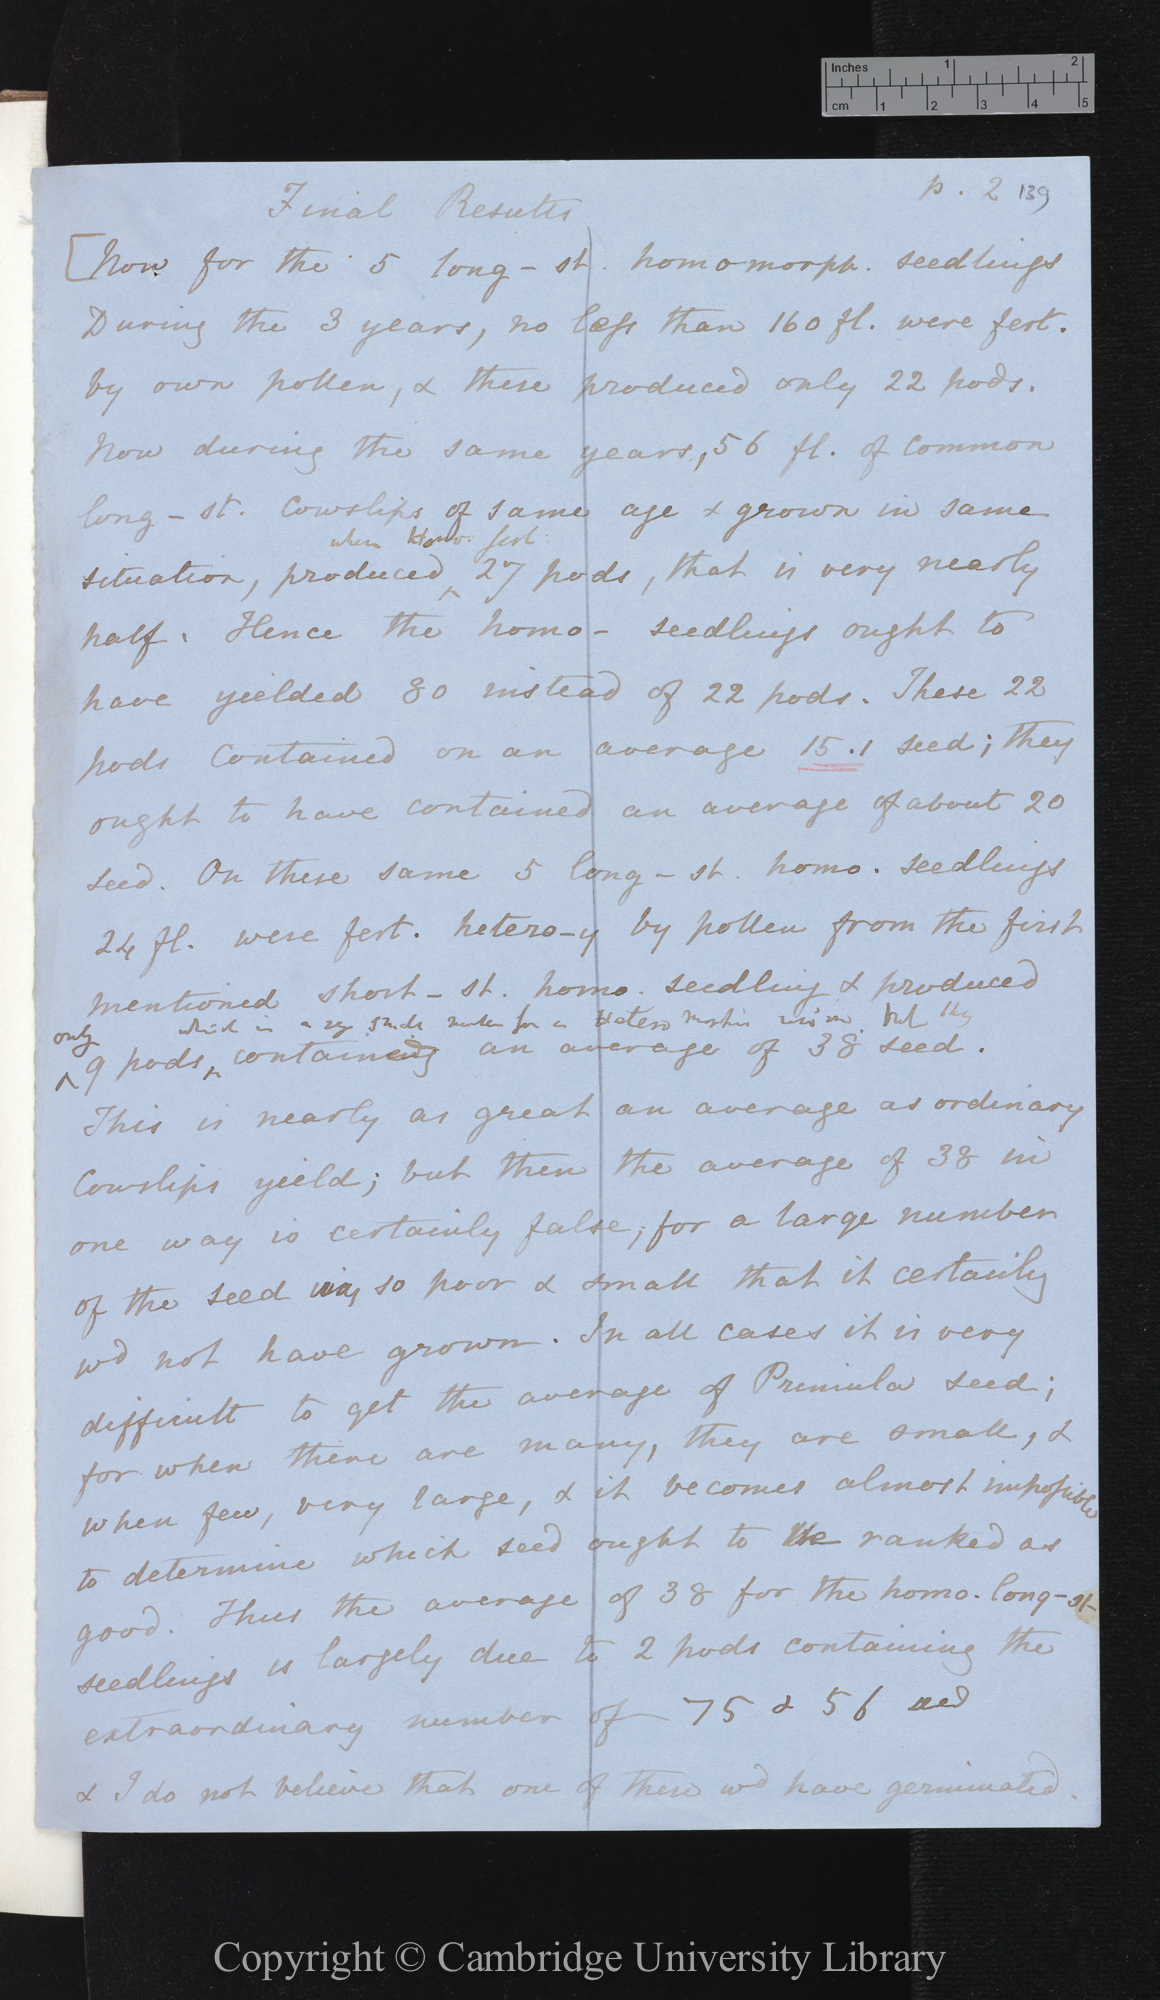 Inches 1 2
cm 1 2 3 4 5
p. 2 139
Final Results
[Now for the 5 long-st. homomorph. seedlings
During the 3 years, no less than 160 fl. were fert.
by own pollen, & these produced only 22 pods.
Now during the same years, 56 fl. of common
long-st. Cowslips of same age & grown in same
when Homo. fert.
situation, produced ^ 27 pods, that is very nearly
half. Hence the homo- seedlings ought to
have yielded 80 instead of 22 pods. These 22
pods contained on an average 15.1 seed; they
ought to have contained an average of about 20
seed. On these same 5 long-st. homo. seedlings
24 fl. were fert. hetero-y by pollen from the first
mentioned short-st. homo. seedling & produced
only which is a very small number for a Hetero morphic union, but they
^ 9 pods, ^ containing an average of 38 seed.
This is nearly as great an average as ordinary
Cowslips yield; but then the average of 38 in
one way is certainly false, for a large number
of the seed was so poor & small that it certainly
wd not have grown. In all cases it is very
difficult to get the average of Primula seed;
for when there are many, they are small, &
when few, very large, & it becomes almost impossible
to determine which seed ought to be ranked as
good. Thus the average of 38 for the homo. long-st-
seedlings is largely due to 2 pods containing the
extraordinary number of 75 & 56 seed
& I do not believe that one of these wd have germinated.
Copyright © Cambridge University Library